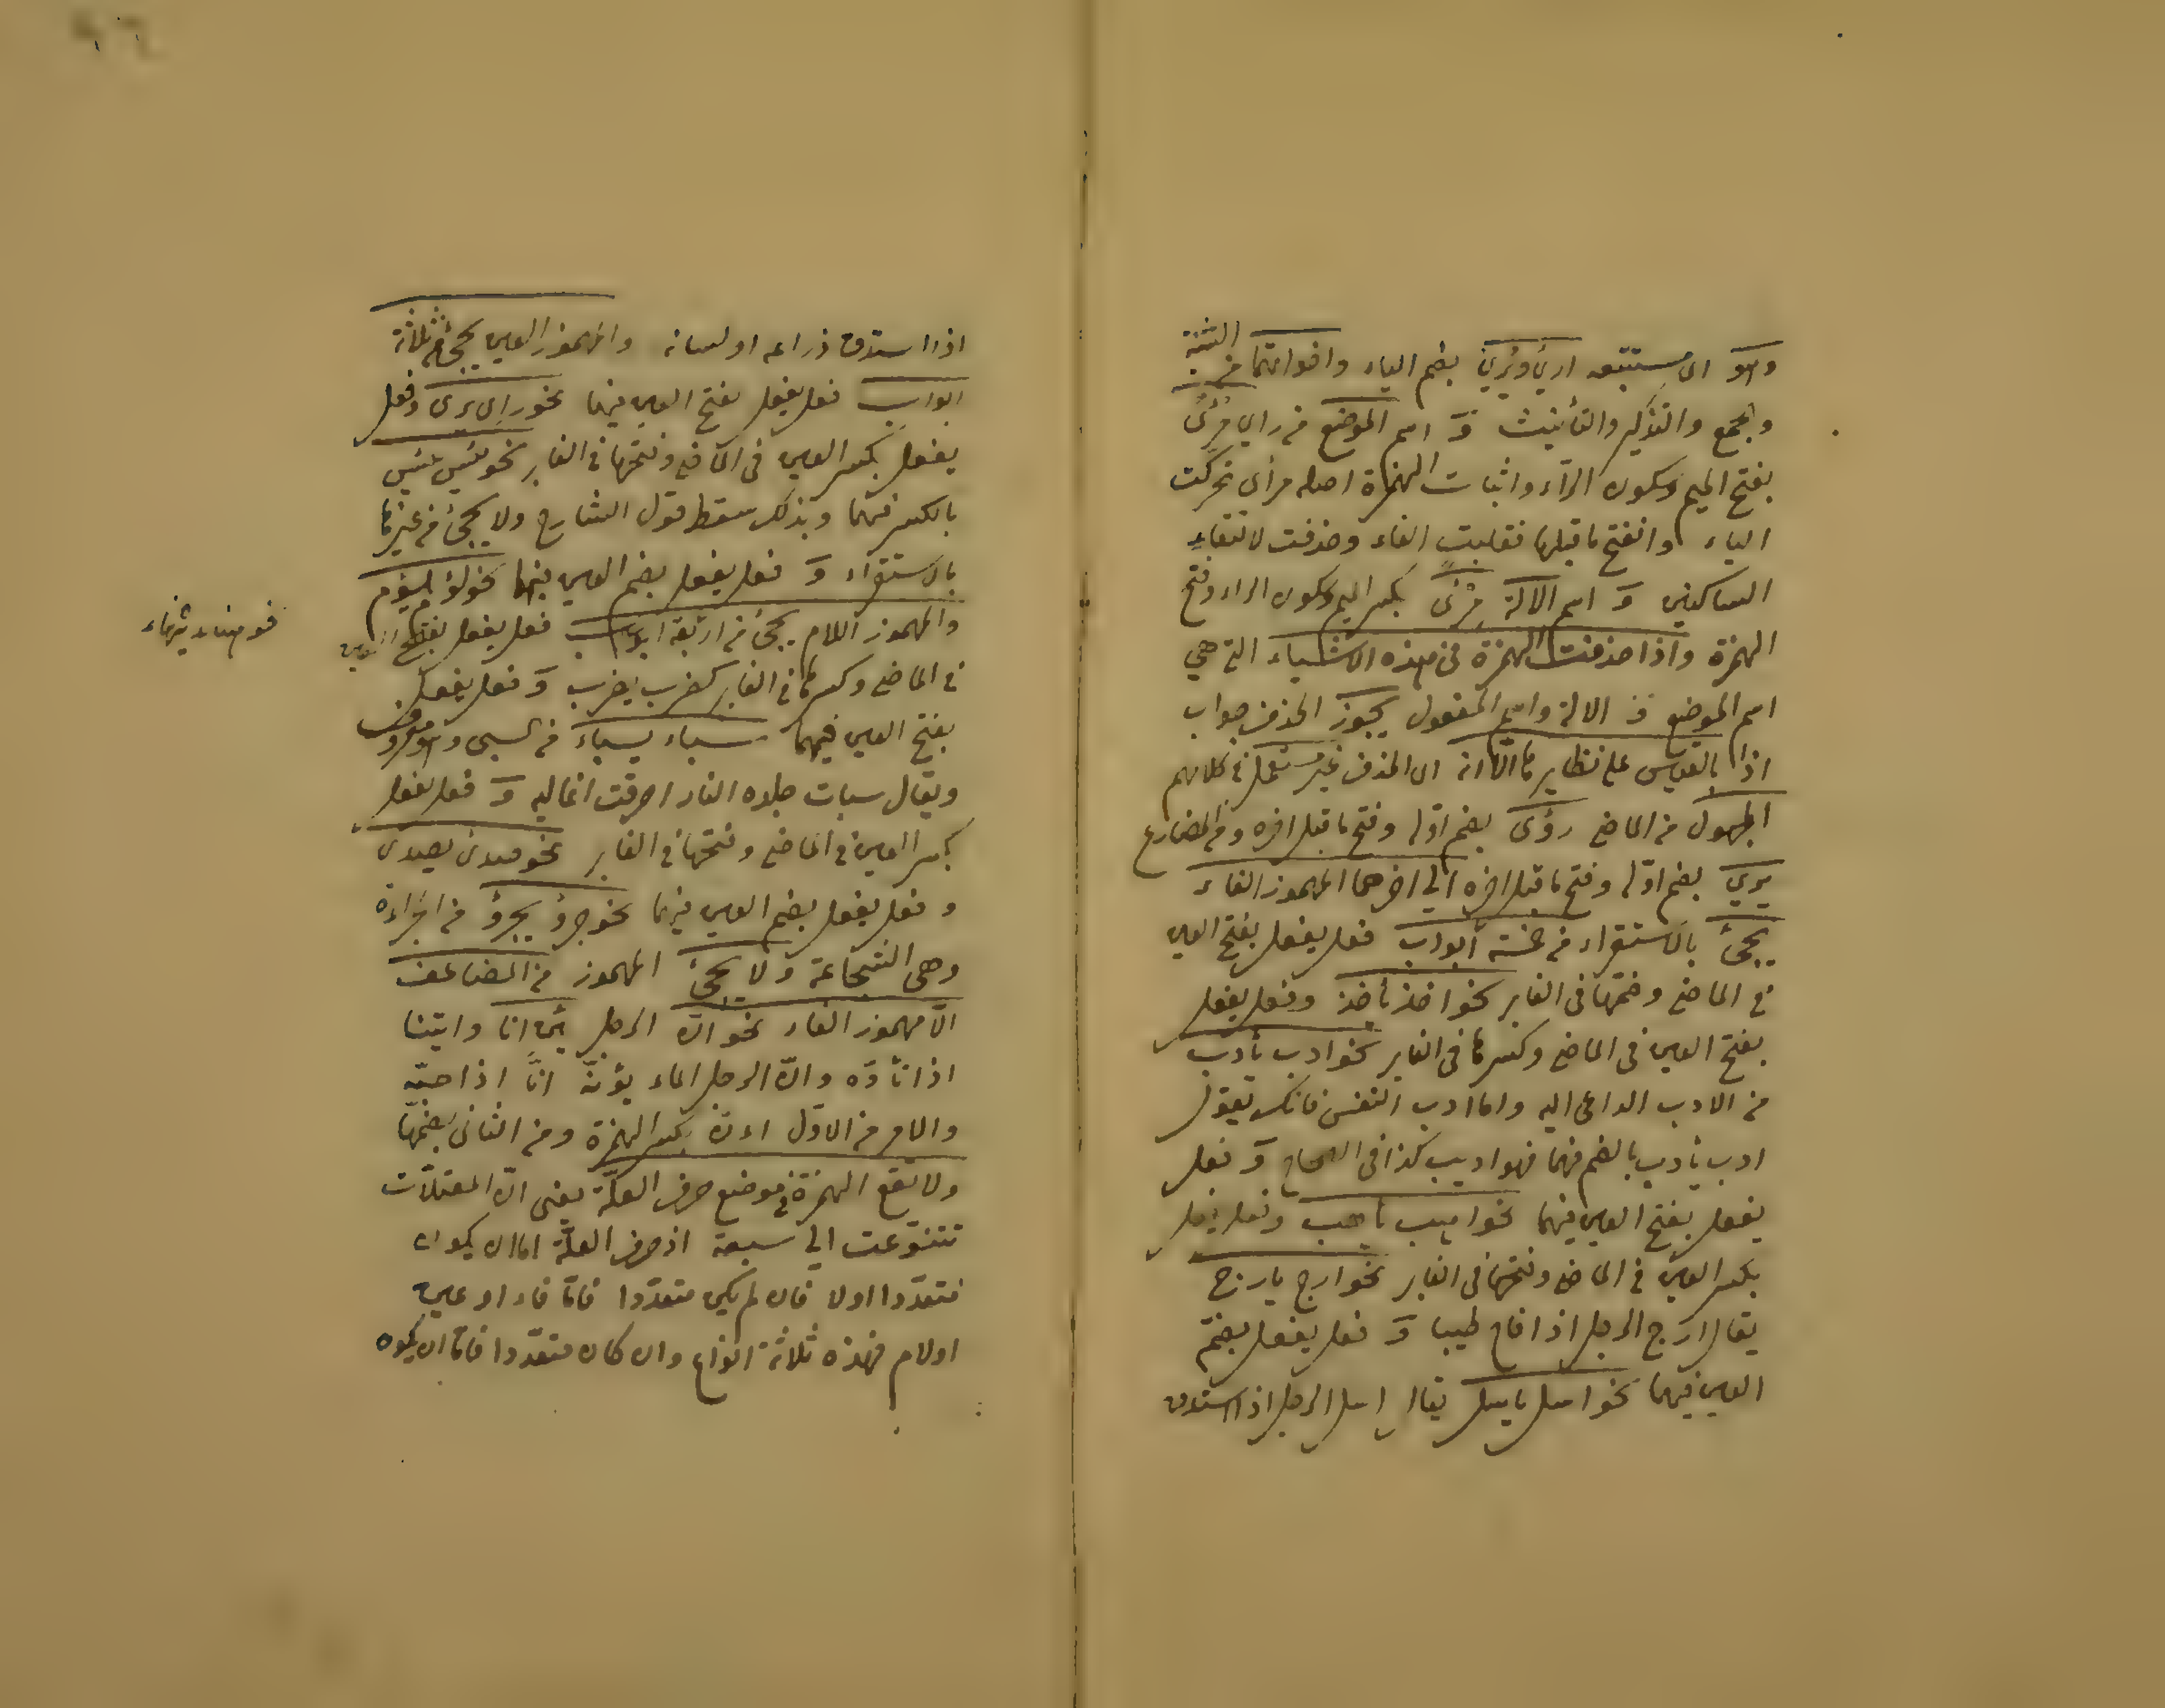 وهو اى مستتبعه اري ويُري بضم الياء واخواتهما من التثنية
والجمع والتذكير والتأنيث وَ اسم الموضع من راي مرئً
بفتح الميم وسكون الرآء واثبات الهمزة اصله مرأى تحركت
الياء وانفتح ما قبلها فقلبت الفاء وحذفت لالتقاء
الساكنين وَ اسم الالة مِرئًى بكسر الميم وسكون الراء وفتح
الهمزة واذا حذفت الهمزة فى هذه الاشياء التى هي
اسم الموضع و الالة واسم المفعول يجوز الحذف جواب
اذا بالقياس على نظايرها الّا انه اى الحذف غير مستعمل فى كلامهم
المجهول من الماضى رؤى بضم اوله وفتح ما قبل اخره ومن المضارع
يري بضم اوله وفتح ما قبل اخره الى اخرهما المهموز الفاء
يجئ بالاستقراء من خمسة أبواب فعل يفعل بفتح العين
فى الماضى وضمها فى الغابر نحو اخذ يأخذ وفعل يفعل
بفتح العين فى الماضى وكسرها فى الغابر نحو ادب يأدب
من الادب الداعى اليه واما ادب النفس فانك تقول
ادب يأدب بالضم فيهما فهو اديب كذا فى الصحاح وَ فعل
يفعل بفتح العين فيهما نحو اهب يأهب وفعل يفعل
بكسر العين فى الماضى وفتحها فى الغابر نحو ارج يارج
يقال ارج الرجل اذا فاح طيبا وَ فعل يفعل بضمّ
العين فيهما نحو اسل ياسل يقال اسل الرجل اذا استدق
اذا استدق ذراعه او لسانه والمهموز العين يجئ من ثلاثة
ابواب فعل يفعل بفتح العين فيهما نحو راى يرى وفعل
يفعل بكسر العين فى الماضى وفتحها فى الغابر نحو يئس ييئس
بالكسر فيهما وبذلك سقط قول الشارح ولا يجئ من غيرها
بالاستقراء وَ فعل يفعل بضم العين فيهما نحو لؤم يلؤم
والمهموز اللام يجئ من اربعة ابواب فعل يفعل بفتح العين
فى الماضى وكسرها فى الغابر كضرب يضرب وَ فعل يفعل
بفتح العين فيهما سباء يسباء من السبى وهو معروف
ويقال سبات جلده النار احرقت اغاليه وَ فعل يفعل
بكسر العين فى الماضى وفتحها فى الغابر نحو صدئ يصدى
و فعل يفعل بضم العين فيهما نحو جرؤ يجرؤ من الجراءة
وهى الشجاعة ولا يجئ المهموز من المضاعف
الّا مهموز الفاء نحو انّ الرجل يئن انا وانينا
اذا تأوّه وانّ الرجل الماء يؤنّه انًّا اذا صبّه
والامر من الاول اءنّ بكسر الهمزة ومن الثانى بضمها
ولا تقع الهمزة فى موضع حرف العلّة يعنى انّ المعتلّات
تتنوّعت الى سبعة اذ حرف العلّة اما ان يكون
متعدّدا اولا فان لم يكن متعدّدا فامّا فاء او عين
اولام فهذه ثلاثة انواع وان كان متعدّدا فامّا ان يكون